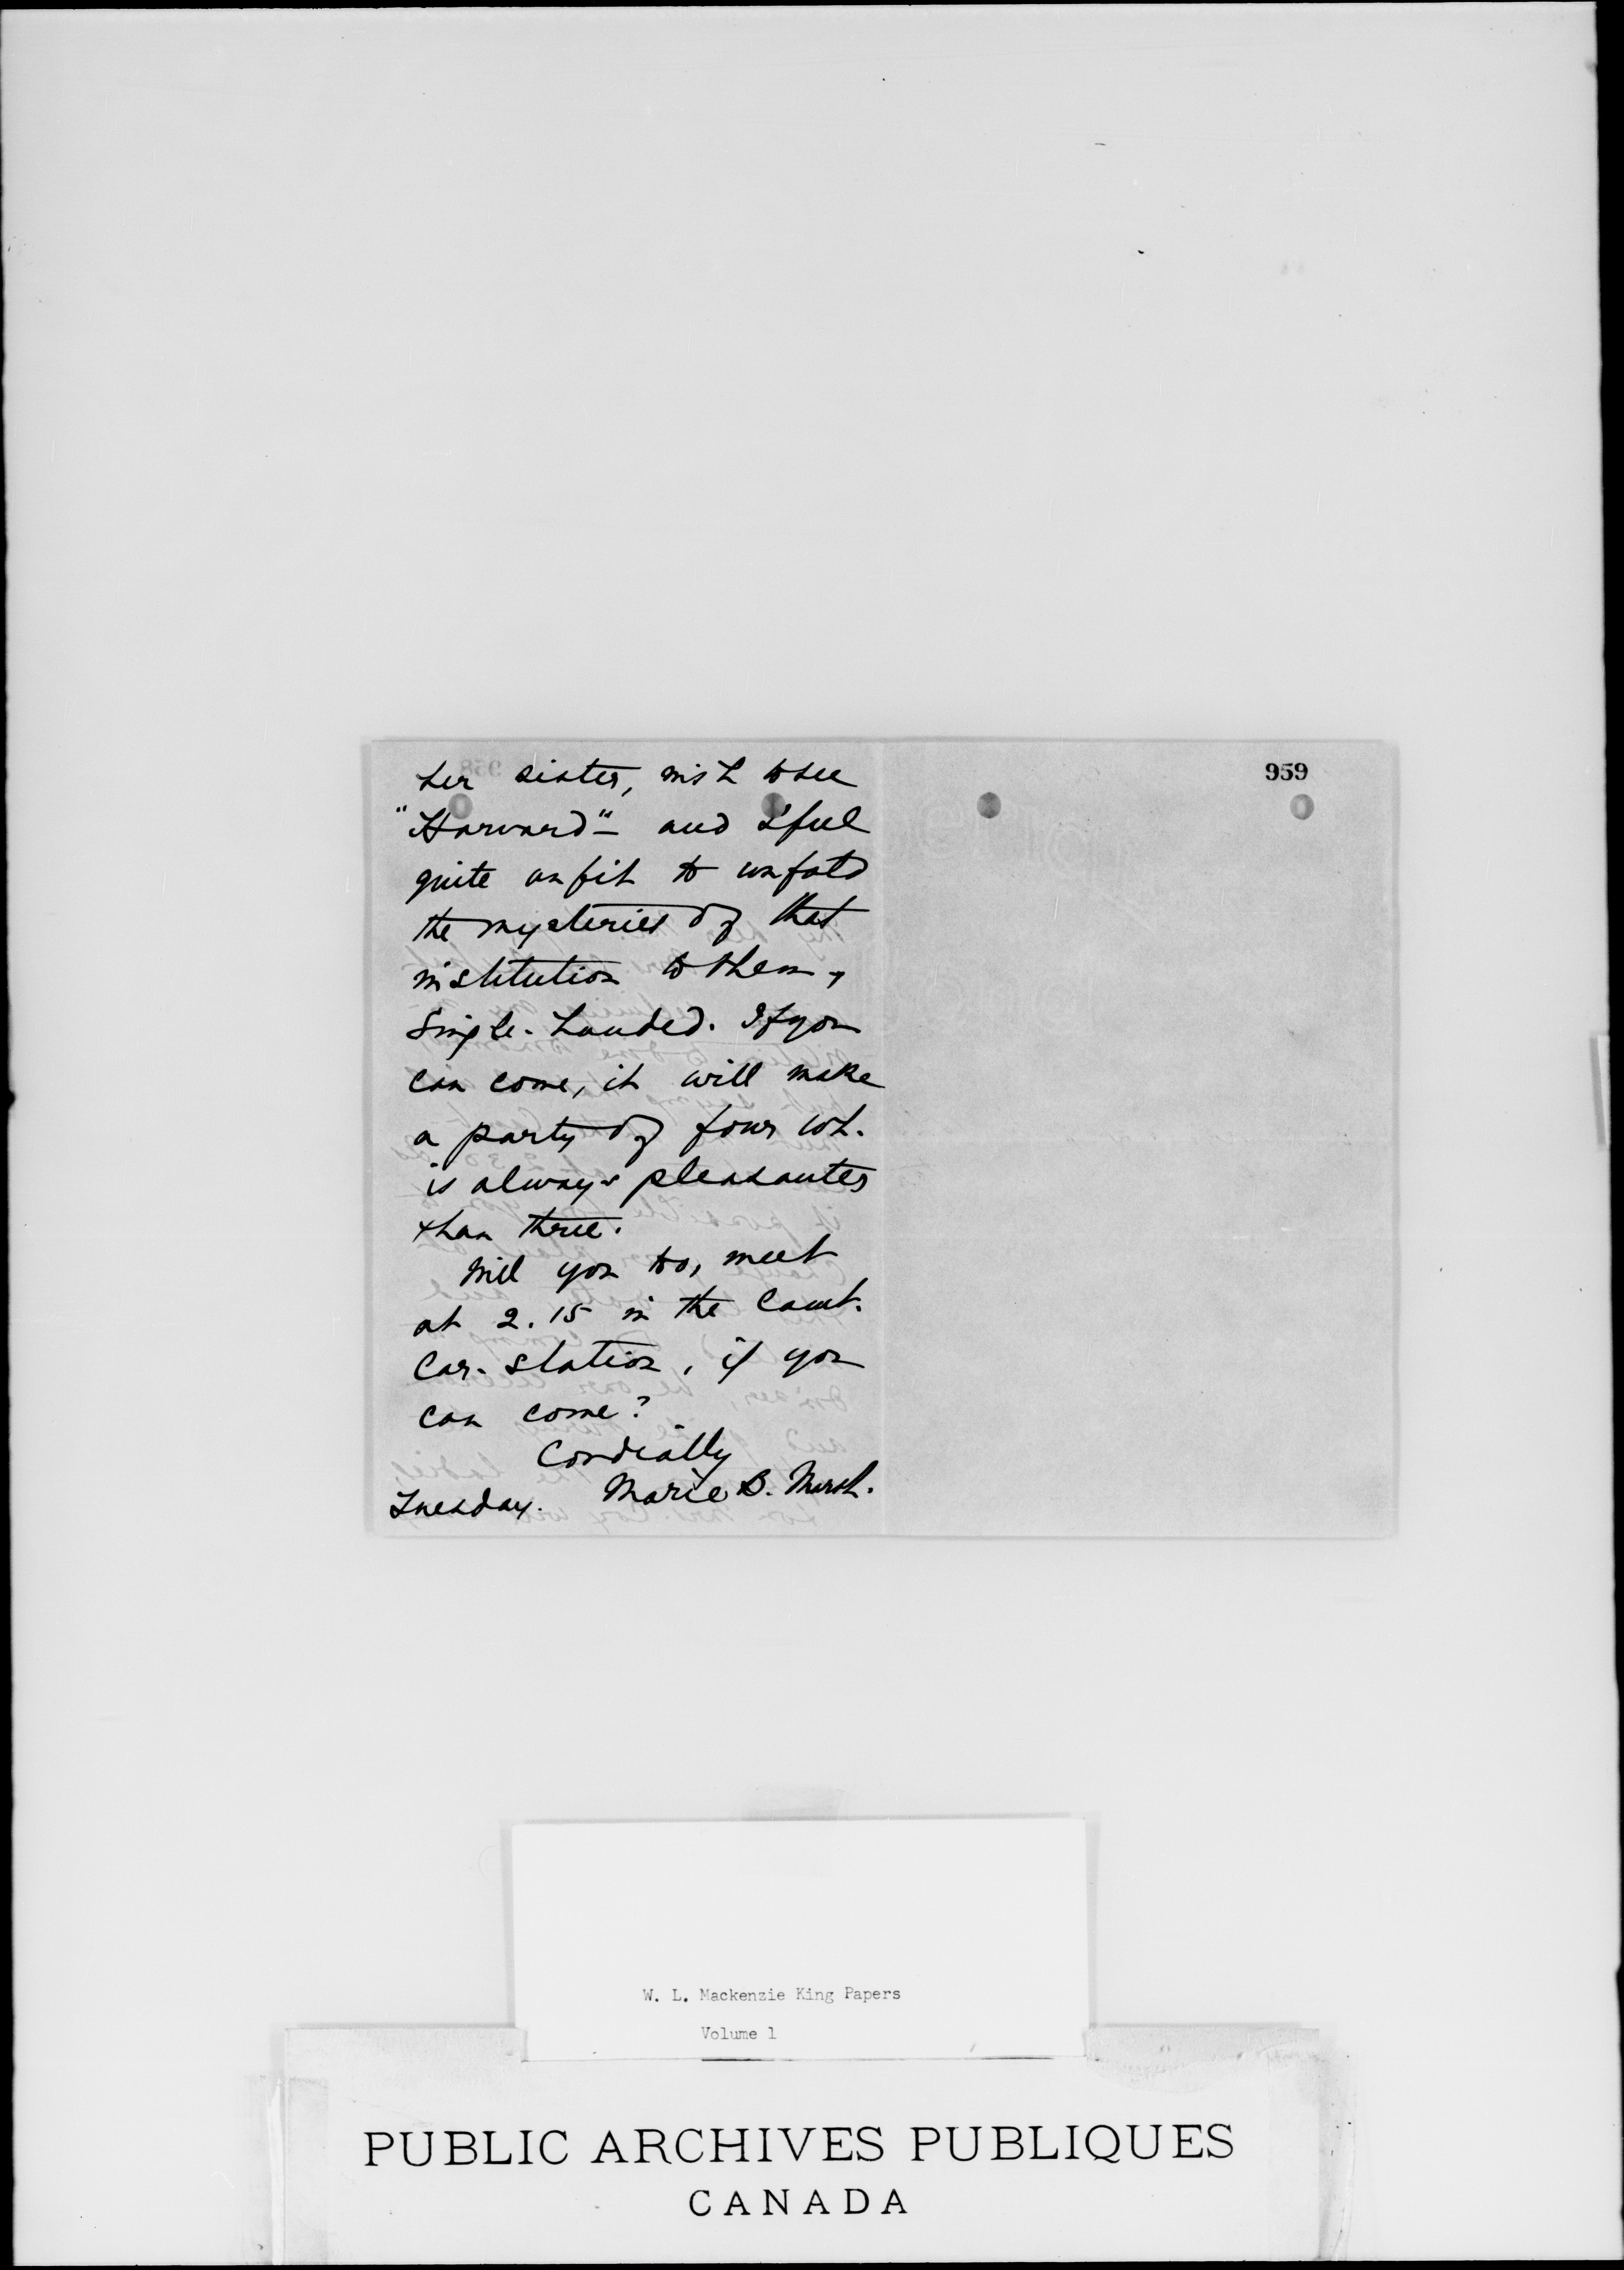 her sister, wish to see
"Harvard" - and I feel
quite unfit to unfold
the mysteries of that
institution to them,
single-handed. If you
can come, it will make
a party of four wh.
is always pleasanter
than three.
Will you to, meet
at 2.15 in the Camb.
Car-station, if you
can come?
Cordially
Marie B. Marsh.
Tuesday.
959
W. L. Mackenzie King Papers
Volume 1
PUBLIC ARCHIVES PUBLIQUES
CANADA